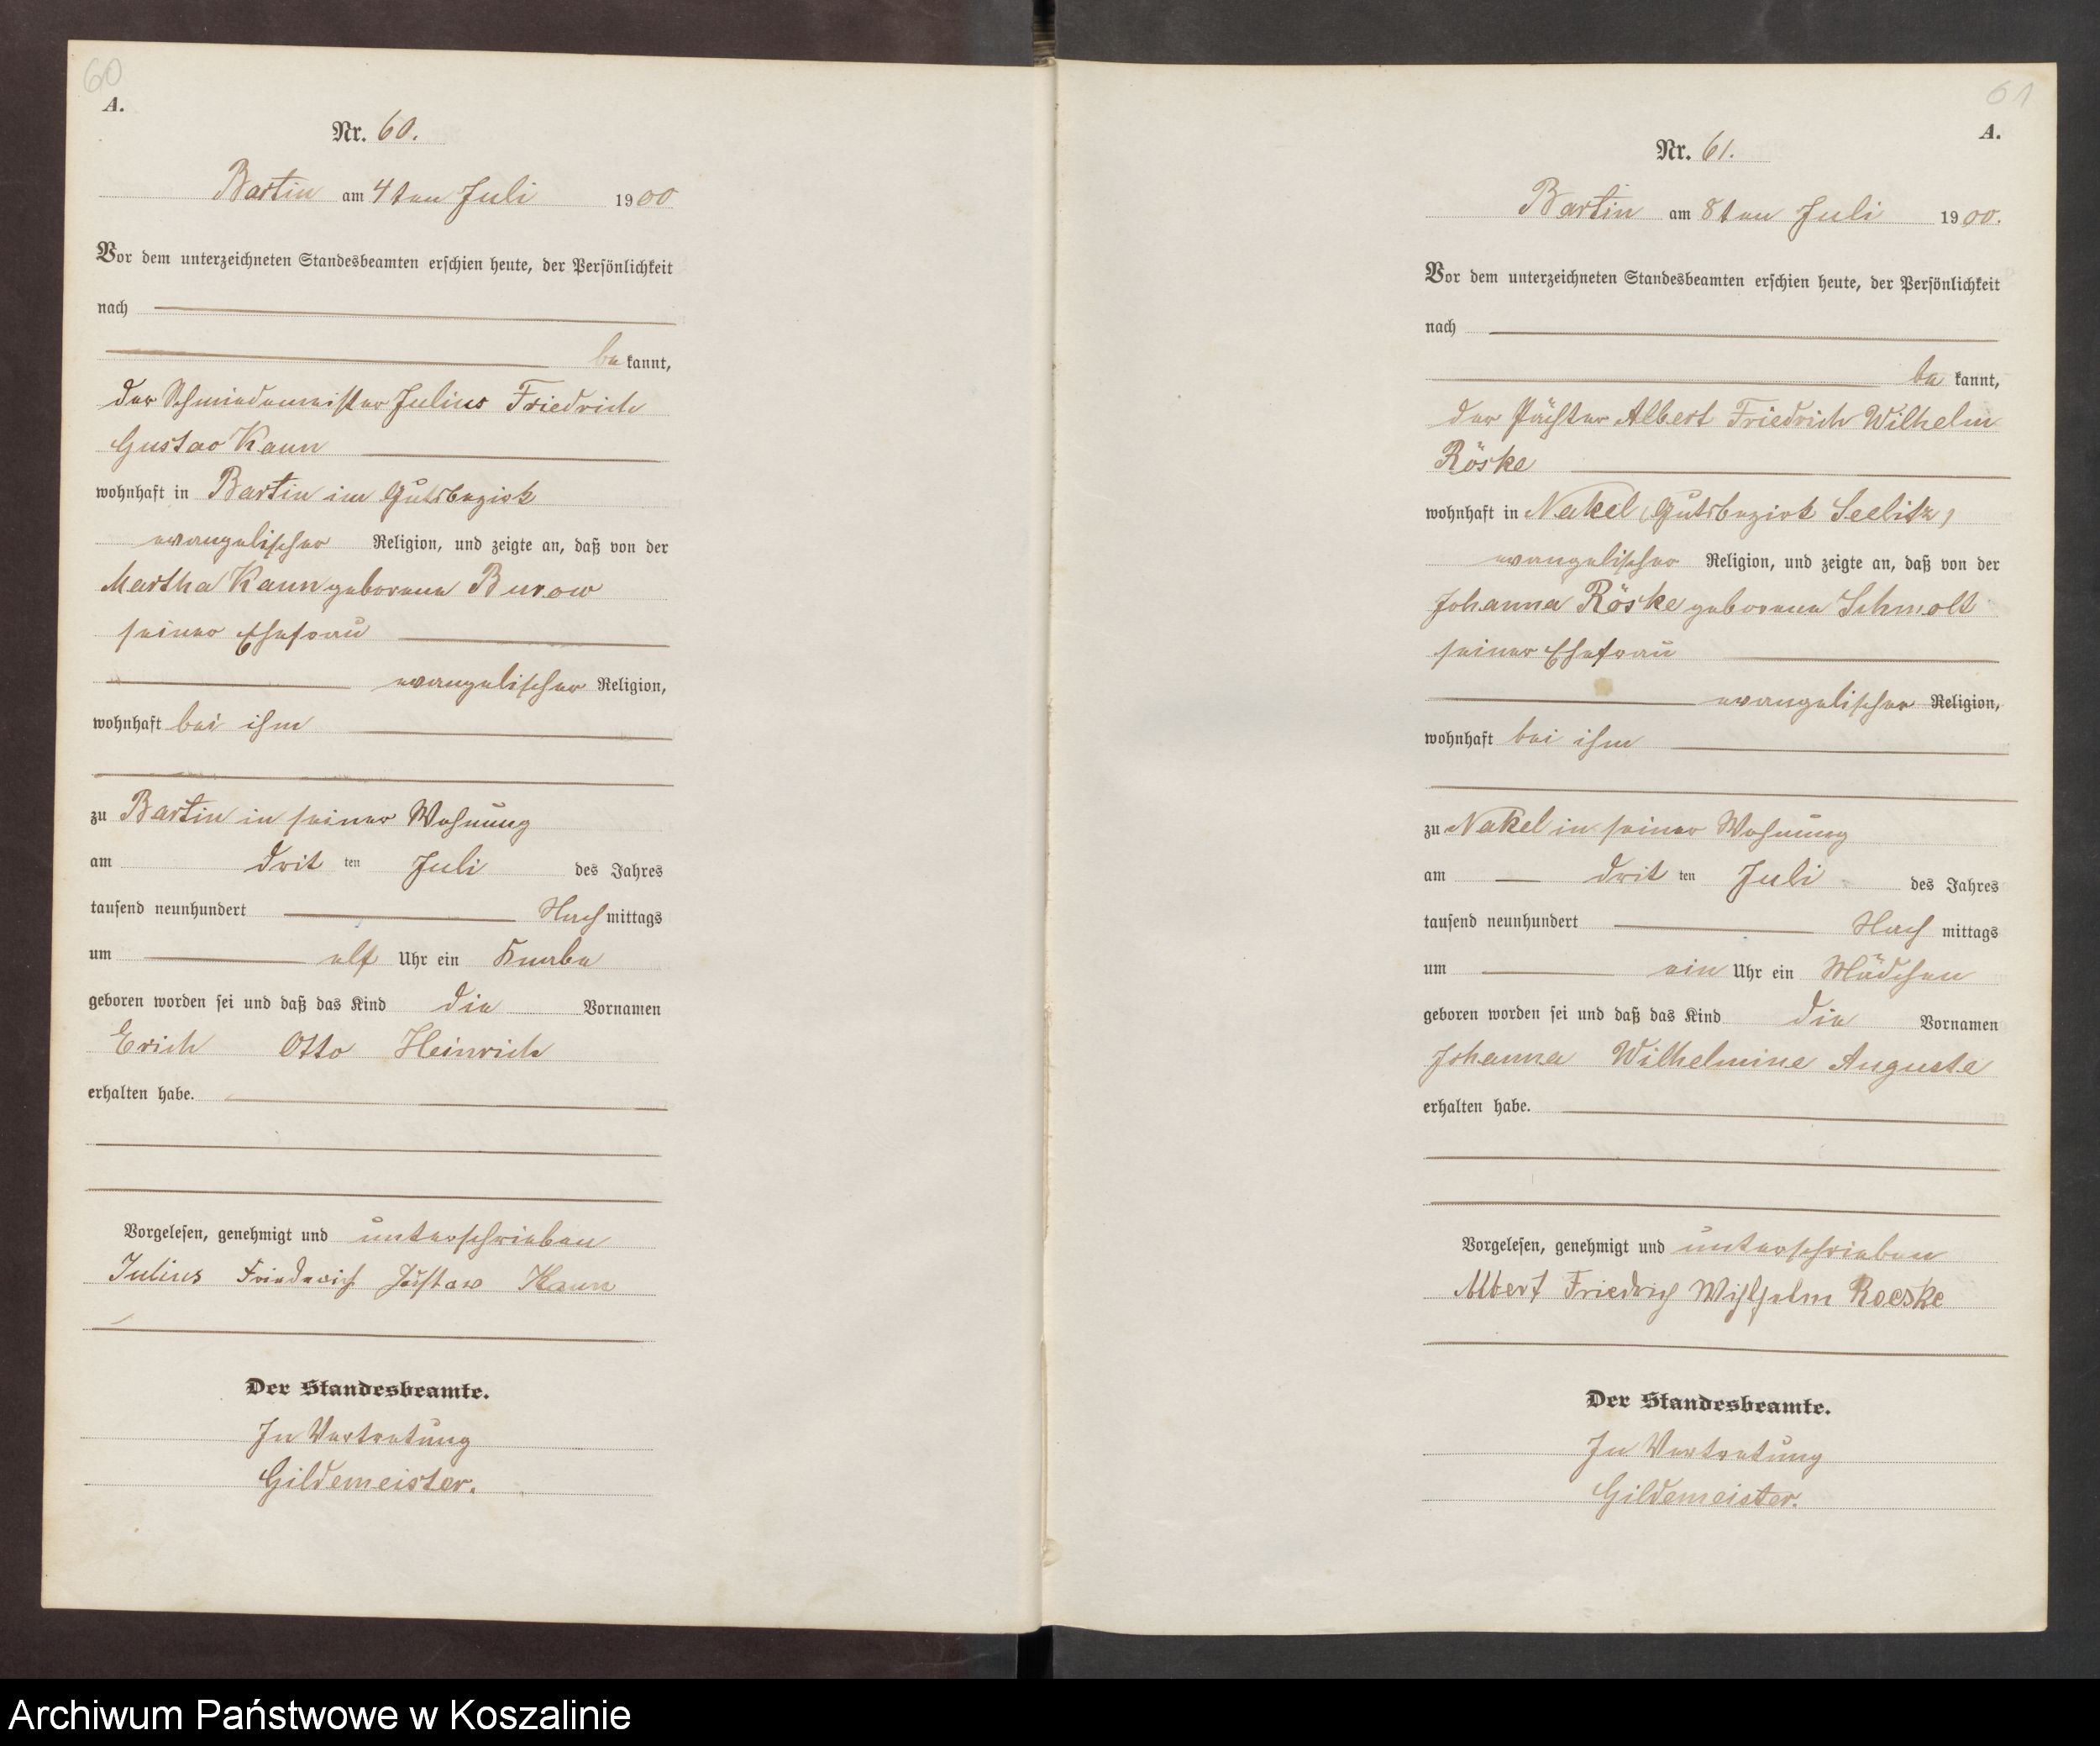 60
A.
Nr. 60.
Bartin am 4ten Juli 1900
Vor dem unterzeichneten Standesbeamten erschien heute, der Persönlichkeit
nach
be kannt,
der Schmiedemeister Julius Friedrich
Gustav Kann
wohnhaft in Bartin im Gutsbezirk
evangelischer Religion, und zeigte an, daß von der
Martha Kann geborene Burow
seiner Ehefrau
evangelischer Religion,
wohnhaft bei ihm
zu Bartin in seiner Wohnung
am drit ten Juli des Jahres
tausend neunhundert Nach mittags
um elf Uhr ein Knabe
geboren worden sei und daß das Kind die Vornamen
Erich Otto Heinrich
erhalten habe.
Vorgelesen, genehmigt und unterschrieben
Julius Friederich Gustaw Kann
Der Standesbeamte.
In Vertretung
Gildemeister.
61
A.
Nr. 61.
Bartin am 8ten Juli 1900.
Vor dem unterzeichneten Standesbeamten erschien heute, der Persönlichkeit
nach
be kannt,
der Pächter Albert Friedrich Wilhelm
Röske
wohnhaft in Nakel (Gutsbezirk Seelitz)
evangelischer Religion, und zeigte an, daß von der
Johanna Röske geborene Schmolt
seiner Ehefrau
evangelischer Religion,
wohnhaft bei ihm
zu Nakel in seiner Wohnung
am drit ten Juli des Jahres
tausend neunhundert Nach mittags
um ein Uhr ein Mädchen
geboren worden sei und daß das Kind die Vornamen
Johanna Wilhelmine Auguste
erhalten habe.
Vorgelesen, genehmigt und unterschrieben
Albert Friedrich Wilhelm Roeske
Der Standesbeamte.
In Vertretung
Gildemeister.
Archiwum Państwowe w Koszalinie